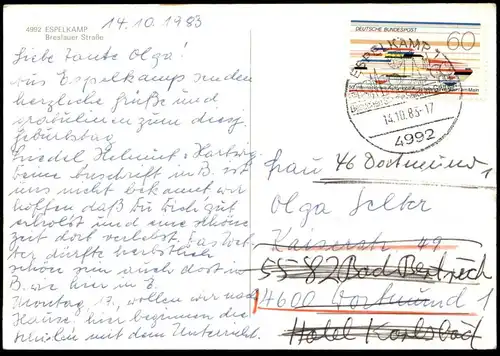 14.10.1983
4992 ESPELKAMP
Breslauer Straße
Liebe Tante Olga!
aus Espelkamp senden
herzliche Grüße und
gratulieren zum diesj.
Geburtstag
Friedel, Helmut + Hartwig
Deine Anschrift in B. ist
uns nicht bekannt, wir
hoffen daß Du Dich gut
erholst und eine schöne
Zeit dort verlebst. Das Wet-
ter dürfte herbstlich
schön sein auch dort in
B. wie hier in E.
Montag 17. wollen wir nach
Hause, hier beginnen die
Schulen mit dem Unterricht.
DEUTSCHE BUNDESPOST
60
ESPELKAMP 1
14.10.83-17
4992
46 Dortmund 1
Frau
Olga
Kaiserstr. 49
5582 Bad Bertrich
4600 Dortmund 1
Hotel Karlsbad